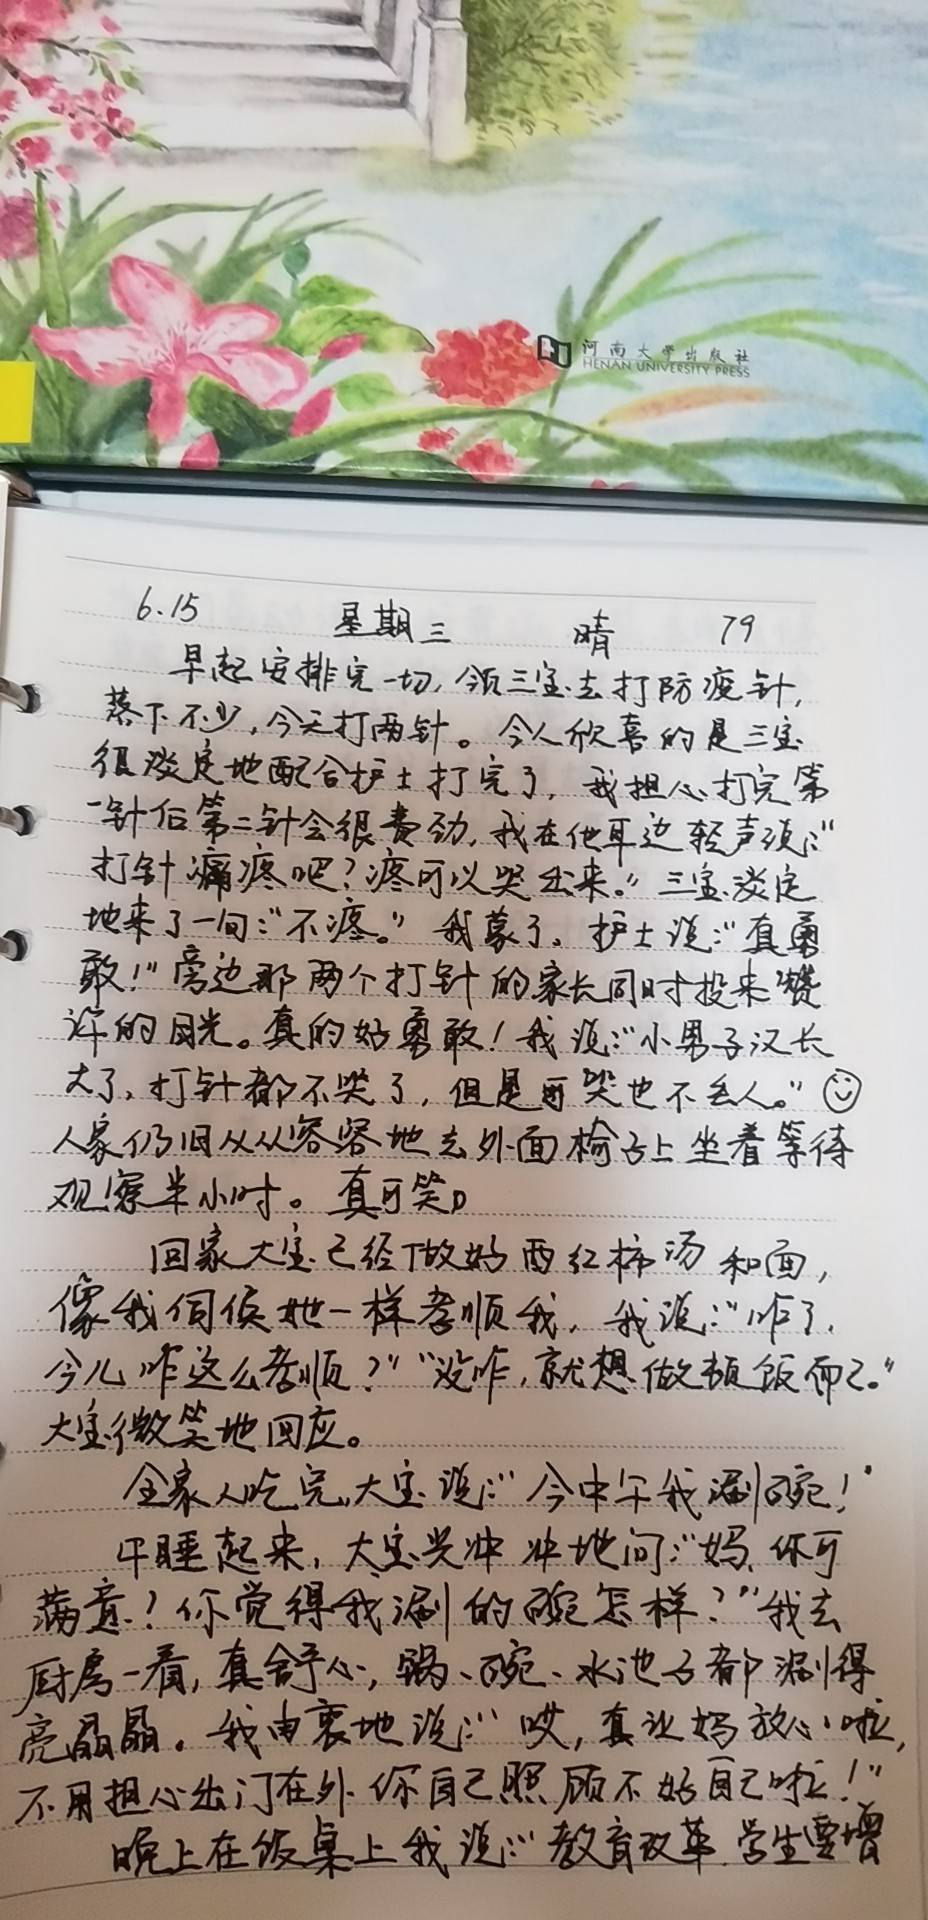 河南大学出版社
HENAN UNIVERSITY PRESS
6.15 星期三 晴 79
早起安排完一切，领三宝去打防疫针，
落下不少，今天打两针。令人欣喜的是三宝
很淡定地配合护士打完了，我担心打完第
一针后第二针会很费劲，我在他耳边轻声说：“
打针痛疼吧？疼可以哭出来。”三宝淡定
地来了一句：“不疼。”我蒙了，护士说：“真勇
敢！”旁边那两个打针的家长同时投来赞
许的目光。真的好勇敢！我说：“小男子汉长
大了，打针都不哭了，但是哭也不丢人。”
人家仍旧从从容容地去外面椅子上坐着等待
观察半小时。真可笑。
回家大宝已经做好西红柿汤和面，
像我伺侯她一样孝顺我，我说：“咋了，
今儿咋这么孝顺？”“没咋，就想做顿饭而已。”
大宝微笑地回应。
全家人吃完，大宝说：“今中午我涮碗！”
午睡起来，大宝兴冲冲地问：“妈，你可
满意！你觉得我涮的碗怎样？”我去
厨房一看，真舒心，锅、碗、水池子都涮得
亮晶晶。我由衷地说：“哎，真让妈放心啦，
不用担心出门在外你自己照顾不好自己啦！”
晚上在饭桌上我说：“教育改革，学生要增